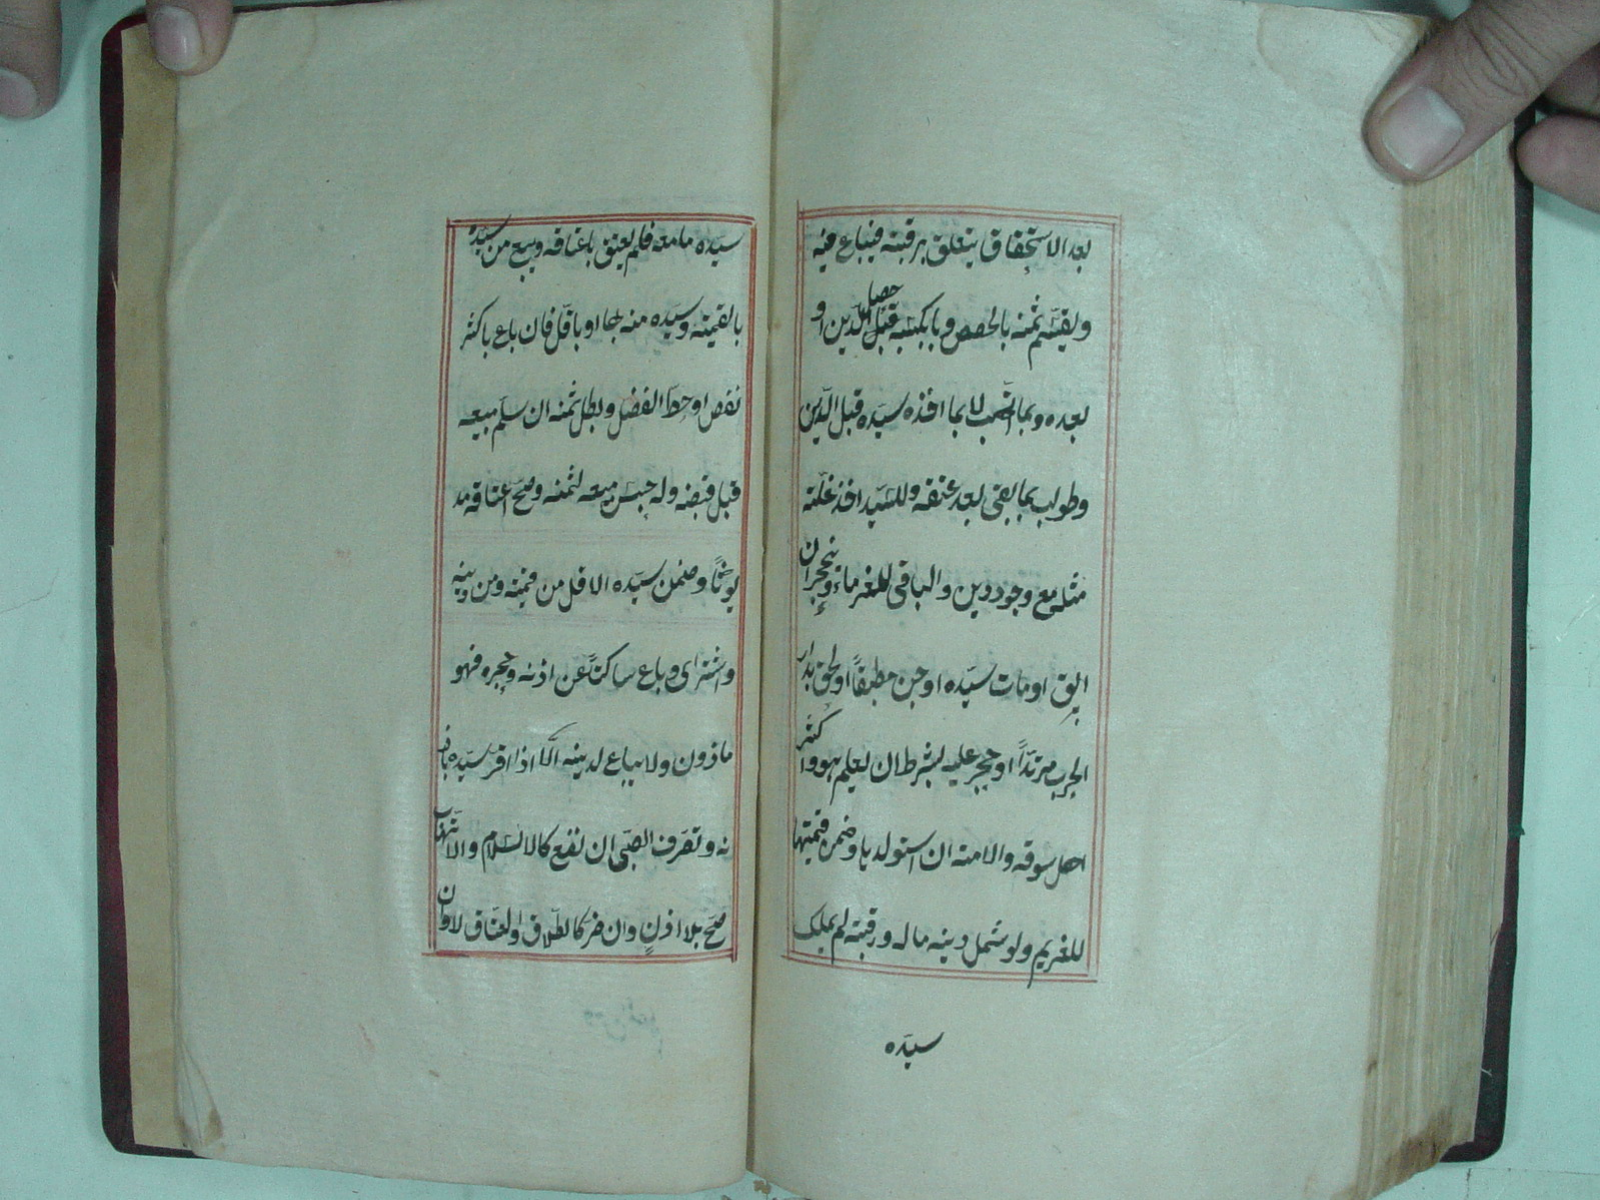 بعد الاستحقاق يتعلق برقبته فيباع فيه
ويقسم ثمنه بالحصص وبا بكسبه حصل قبل الدّين او
بعده وبما اتّهب لا بما اخذه سيّده قبل الدّين
وطولب بما بقى بعد عتقه وللسّيد اخذ غلّته
مثله مع وجود دين والباقى للغرماء وينحجر ان
ابق او مات سيّده او جن مطبقاً او لحق بدار
الحرب مرتدّاً او حجر عليه بشرط ان يعلم هو واكثر
اهل سوقه والامة ان استولدها وضمن قيمتها
للغريم ولو شمل دينه ماله ورقبته لم يملك
سيّده
سيّده ما معه فلم يعتق باعتاقه ويبيع من سيّده
بالقيمة وسيّده منه بها او باقل فان باع باكثر
نقص او حطّ الفضل وبطل ثمنه ان سلّم مبيعه
قبل قبضه وله حبس مبيعه لثمنه وصحّ اعتاقه مد
يوناً وضمن سيّده الاقل من قيمته ومن دينه
واشترى وباع ساكتاً عن اذنه وحجره فهو
ماذون ولا يباع لدينه الّا اذا اقر سيّده باذ
نه وتصرف الصّبى ان نفع كالاسلام والاتّهاب
صحّ بلا اذن وان ضرّ كالطّلاق والعتاق لا وان